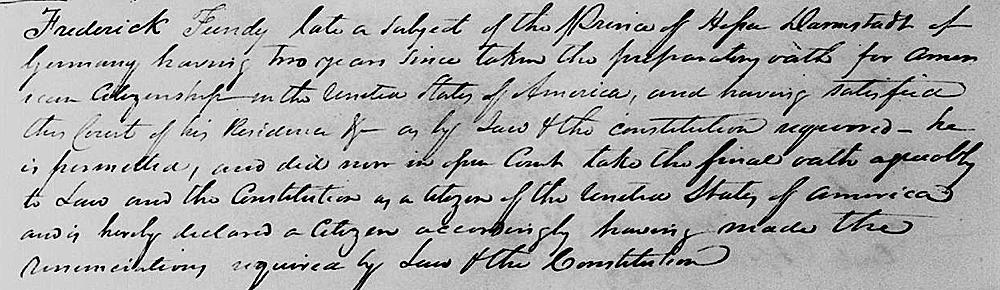 Frederick Fundy late a subject of the Prince of Hesse Darmstadt of
Germany having two years since taken the preparatory oath for Amer
ican Citizenship in the United States of America, and having satisfied
this Court of his Residence &c as by Law & the constitution required - he
is permitted, and did now in open Court take the final oath agreeably
to Law and the Constitution as a Citizen of the United States of America
and is hereby declared a Citizen accordingly having made the
renunciations required by Law & the Constitution